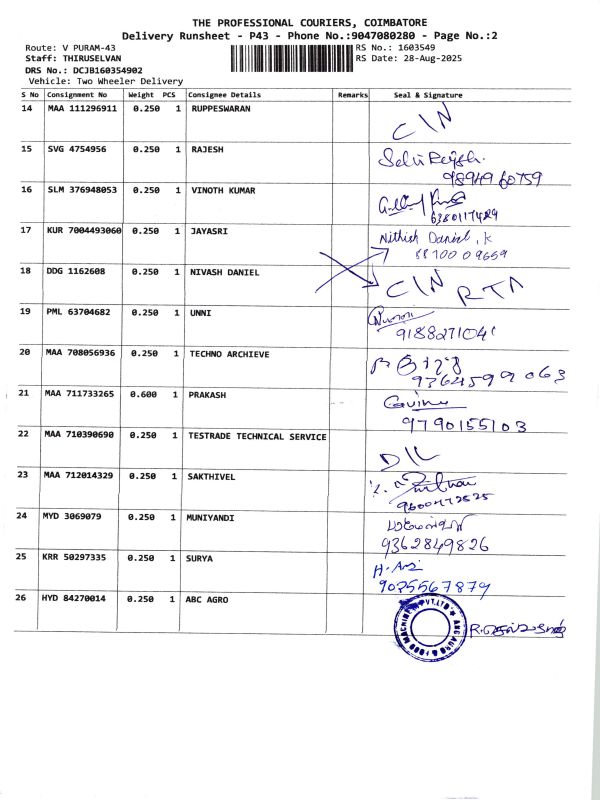 THE PROFESSIONAL COURIERS, COIMBATORE
Delivery Runsheet - P43 - Phone No.:9047080280 - Page No.:2
Route: V PURAM-43 RS No.: 1603549
Staff: THIRUSELVAN RS Date: 28-Aug-2025
DRS No.: DCJB160354902
Vehicle: Two Wheeler Delivery
S No Consignment No Weight PCS Consignee Details Remarks Seal & Signature
14 MAA 111296911 0.250 1 RUPPESWARAN CIN
15 SVG 4754956 0.250 1 RAJESH
9894960759
16 SLM 376948053 0.250 1 VINOTH KUMAR
17 KUR 7004493060 0.250 1 JAYASRI Nithish Daniel, K
8870009659
18 DDG 1162608 0.250 1 NIVASH DANIEL CIN
19 PML 63704682 0.250 1 UNNI
9188271041
20 MAA 708056936 0.250 1 TECHNO ARCHIEVE
9364599063
21 MAA 711733265 0.600 1 PRAKASH
9790155103
22 MAA 710390690 0.250 1 TESTRADE TECHNICAL SERVICE D/L
23 MAA 712014329 0.250 1 SAKTHIVEL
9600472525
24 MYD 3069079 0.250 1 MUNIYANDI
9362849826
25 KRR 50297335 0.250 1 SURYA
9025567879
26 HYD 84270014 0.250 1 ABC AGRO